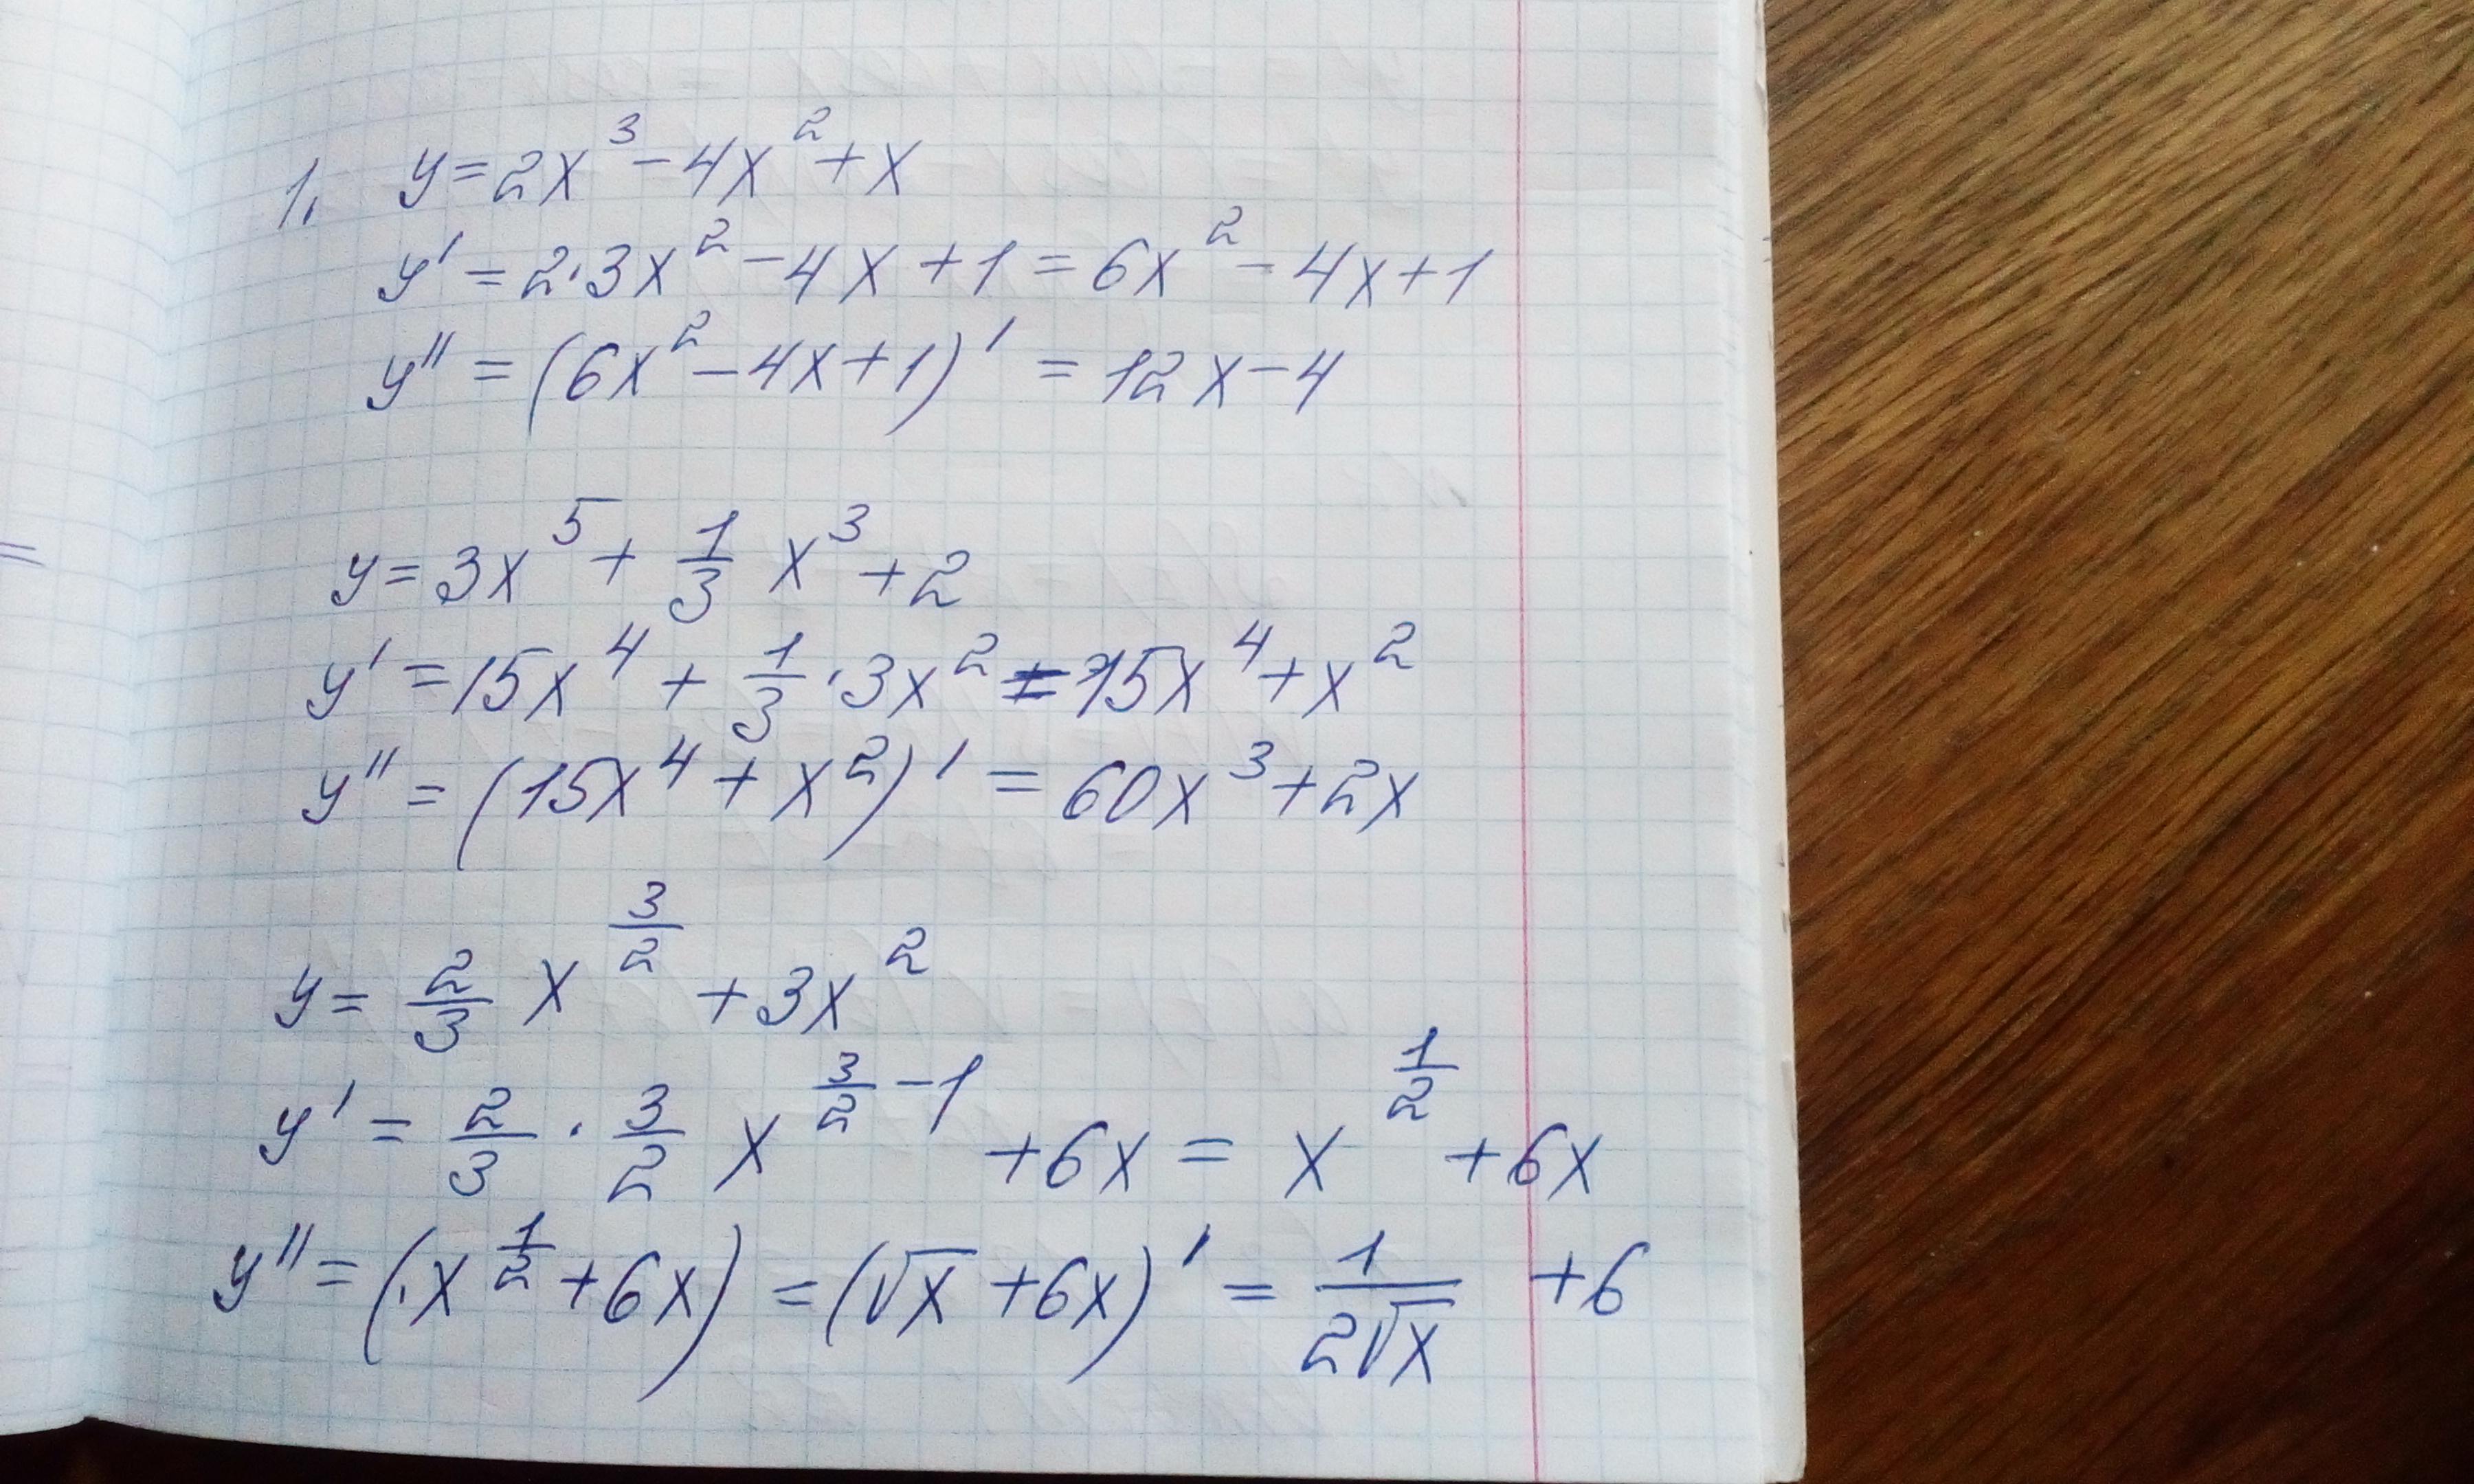 1. y = 2x³ - 4x² + x
y' = 2·3x² - 4x + 1 = 6x² - 4x + 1
y'' = (6x² - 4x + 1)' = 12x - 4
y = 3x⁵ + 1/3 x³ + 2
y' = 15x⁴ + 1/3 · 3x² = 15x⁴ + x²
y'' = (15x⁴ + x²)' = 60x³ + 2x
y = 2/3 x^(3/2) + 3x²
y' = 2/3 · 3/2 x^(3/2 - 1) + 6x = x^(1/2) + 6x
y'' = (x^(1/2) + 6x) = (√x + 6x)' = 1/(2√x) + 6